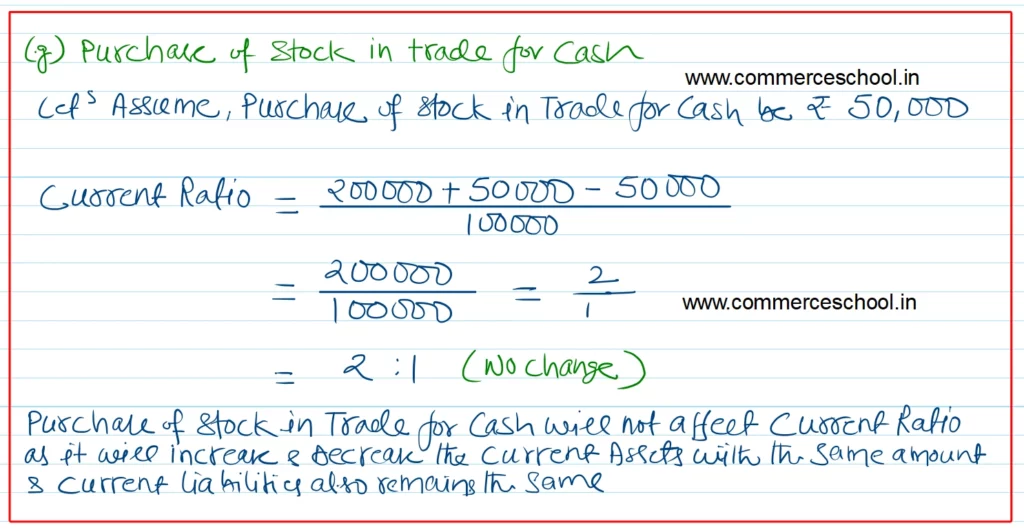 (g) Purchase of Stock in trade for Cash
www.commerceschool.in
Let's Assume, Purchase of Stock in Trade for Cash be ₹ 50,000
Current Ratio = 200000 + 50000 - 50000 / 100000
= 200000 / 100000 = 2 / 1
www.commerceschool.in
= 2 : 1 (No change)
Purchase of Stock in Trade for Cash will not affect Current Ratio
as it will increase & Decrease the Current Assets with the same amount
& Current liabilities also remains the same